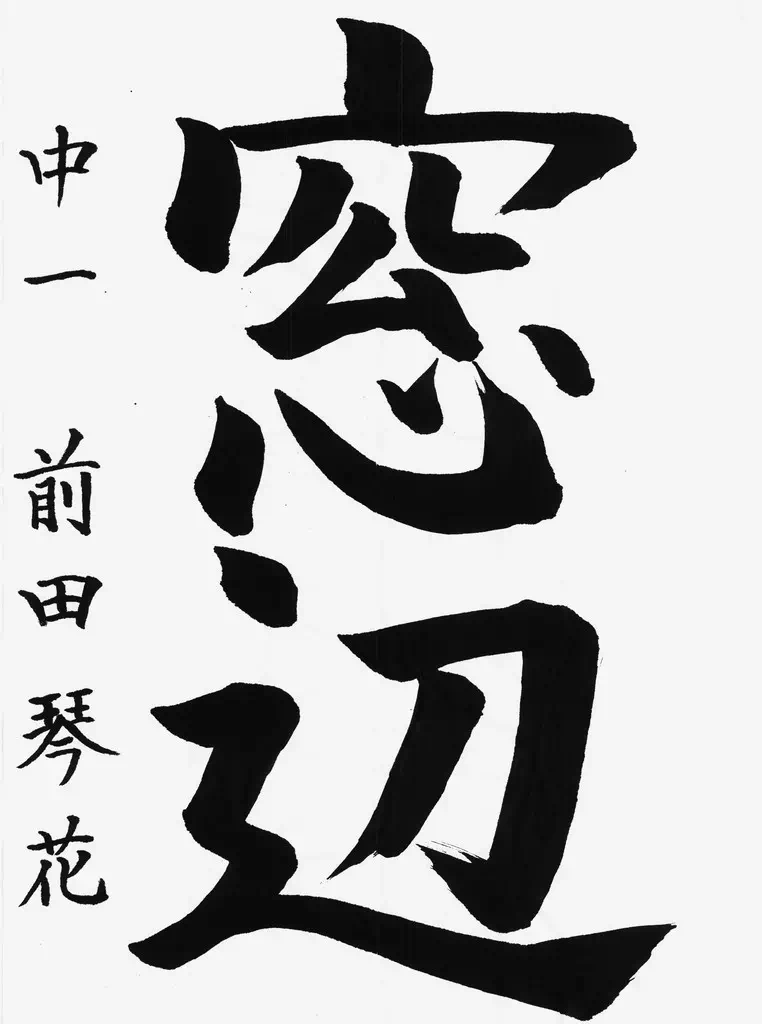 窓辺
中一 前田琴花